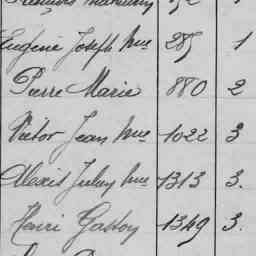 Eugène Joseph Mie 285 1
Pierre Marie 880 2
Victor Jean Mie 1022 3
Alexis Julien Mie 1313 3.
Henri Gaston 1349 3.